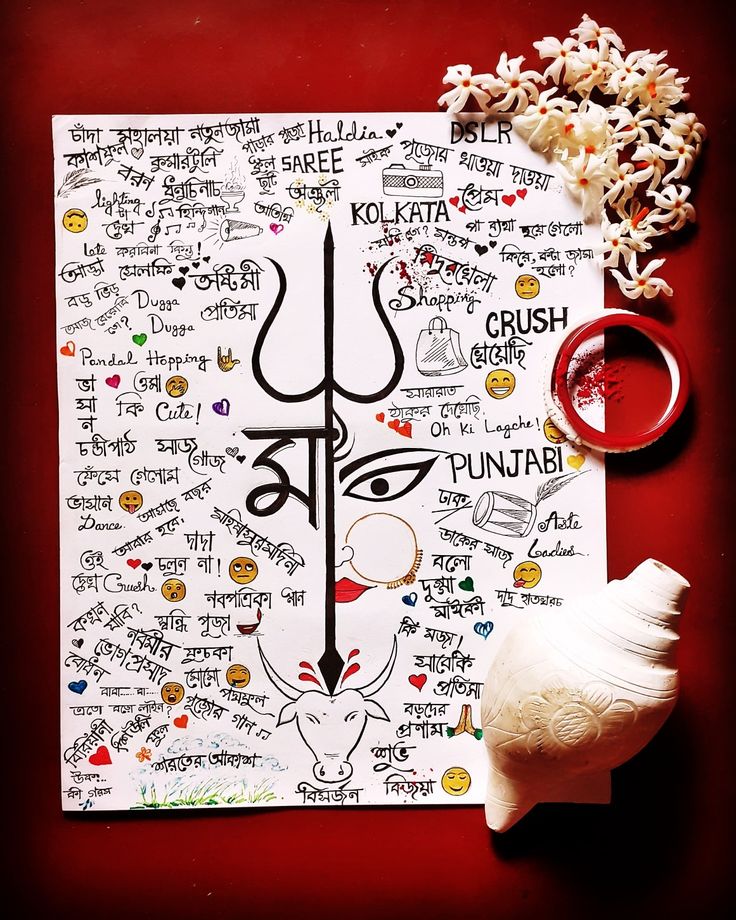 চাঁদা মহালয়া নতুনজামা
কাশফুল কুমারটুলি
বরণ ধুনুচিনাচ
পাড়ার পূজা Haldia
স্কুল ছুটি SAREE
অঞ্জলী
DSLR
সাইক পূজোর খাওয়া দাওয়া
প্রেম
KOLKATA
পা ব্যথা হয়ে গেলো
lighting
টা দেখ
হিন্দিগান
Late করবিনা কিন্তু!
আড্ডা সেলফি
অষ্টমী
মন্ডপ
কিরে, ক'টা জামা হলো?
সিঁদুরখেলা
বড্ড ভিড়
Dugga
Dugga
প্রতিমা
Shopping
CRUSH
খেয়েছি
Pandal Hopping
ভাসান
ওমা
কি Cute!
সারারাত
ঠাকুর দেখেছি
Oh Ki Lagche!
চন্ডীপাঠ সাজ গোজ
মা
PUNJABI
ফেঁসে গেলোম
ভাসান
Dance
আসছে বছর
আবার হবে
ঢাক
ঢাকের সাজ
Aste
Ladies
দাদা
চলুন না!
মহিষাসুরমর্দিনী
ওই দেখ Crush
বলো
দুগ্গা
মাঈকী
দাদু হাতখরচ
নবপত্রিকা স্নান
কখন যাবি?
সন্ধি পূজা
কি মজা!
নবমীর
ভোগ প্রসাদ
বোধন
ফুচকা
মোমো
সাবেকি
প্রতিমা
বাবা.....বা...
এতো বড়ো লাইন?
পদ্মফুল
পূজোর গান
বড়দের
প্রণাম
বিরিয়ানী
শরতের আকাশ
শুভ
বিজয়া
উফফ..
কী গরম
বিসর্জন